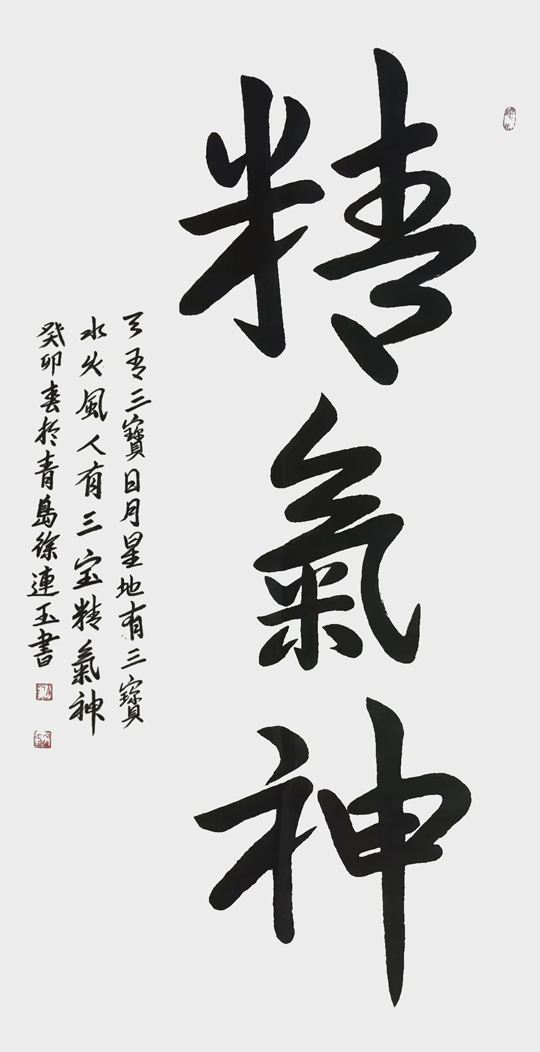 精氣神
天有三寶日月星地有三寶
水火風人有三宝精氣神
癸卯春於青島徐連玉書